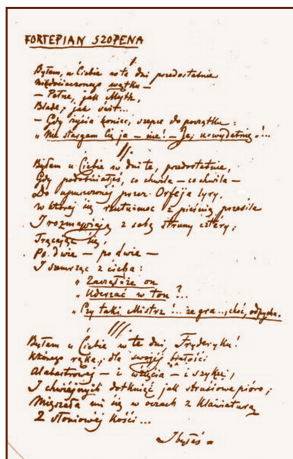 FORTEPIAN SZOPENA
I.
Byłem u Ciebie w te dni przedostatnie
Niedocieczonego wątku –
– Pełne, jak Mythe,
Blade, jak świt...
– Gdy życia koniec szepce do początku:
„Nie stargam Cię ja – nie! – Ja, uwydatnię!...
II.
Byłem u Ciebie w dni te, przedostatnie,
Gdy podobniałeś, co chwila – co chwila –
Do upuszczonej przez Orfeja liry,
W której się rzutu-moc z pieśnią przesila
I rozmawiają z sobą struny cztéry,
Trącając się,
Po dwie – po dwie –
I szemrząc z cicha:
„Zacząłże on
„Uderzać w ton?...
„Czy taki Mistrz!... że gra.., choć, odpycha.
III.
Byłem u Ciebie w te dni, Fryderyku!
Którego ręka, dla swojéj białości
Alabastrowéj – i wzięcia – i szyku,
I chwiejnych dotknięć jak strusiowe pióro,
Mięszała mi się w oczach z klawiaturą
Z słoniowéj kości...
I byłeś –